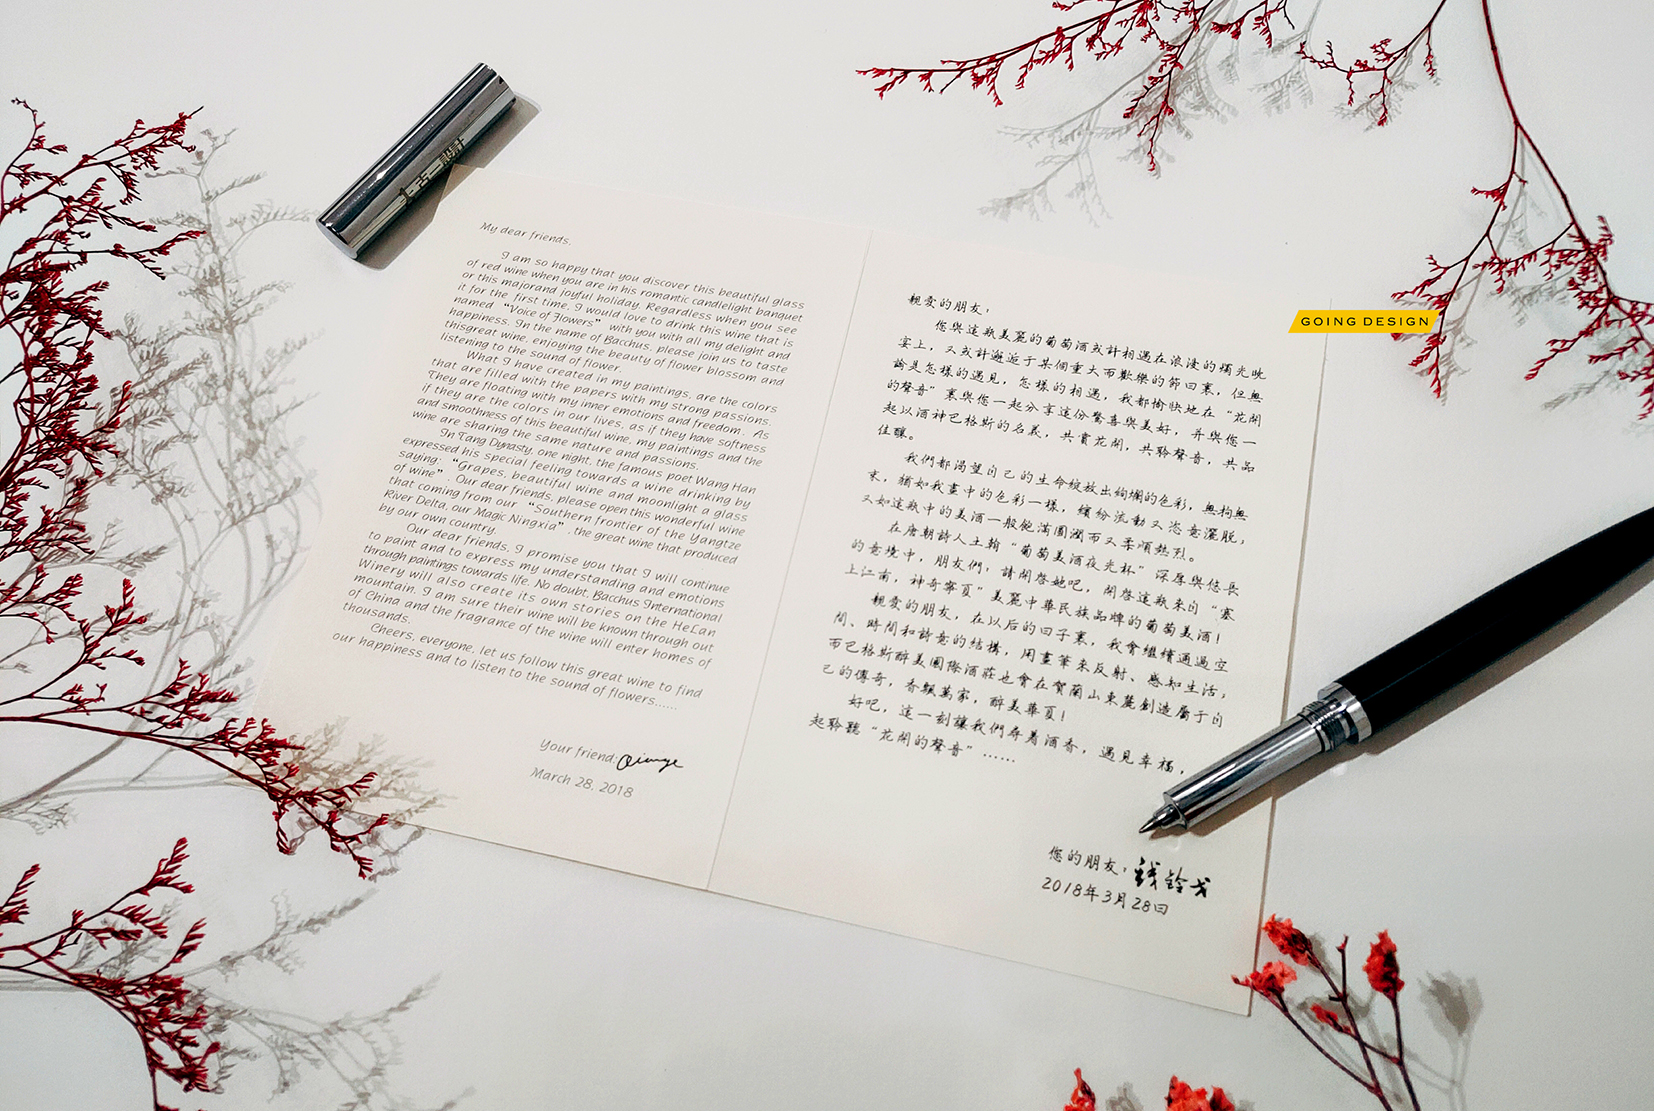 My dear friends,
I am so happy that you discover this beautiful glass
of red wine when you are in his romantic candlelight banquet
or this majorand joyful holiday. Regardless when you see
it for the first time, I would love to drink this wine that is
named “Voice of Flowers” with you with all my delight and
happiness. In the name of Bacchus, please join us to taste
thisgreat wine, enjoying the beauty of flower blossom and
listening to the sound of flower.
What I have created in my paintings, are the colors
that are filled with the papers with my strong passions.
They are floating with my inner emotions and freedom. As
if they are the colors in our lives, as if they have softness
and smoothness of this beautiful wine, my paintings and the
wine are sharing the same nature and passions.
In Tang Dynasty, one night, the famous poet Wang Han
expressed his special feeling towards a wine drinking by
saying: “Grapes, beautiful wine and moonlight a glass
of wine”. Our dear friends, please open this wonderful wine
that coming from our “Southern frontier of the Yangtze
River Delta, our Magic Ningxia”, the great wine that produced
by our own country.
Our dear friends, I promise you that I will continue
to paint and to express my understanding and emotions
through paintings towards life. No doubt, Bacchus International
Winery will also create its own stories on the HeLan
mountain. I am sure their wine will be known through out
of China and the fragrance of the wine will enter homes of
thousands.
Cheers, everyone, let us follow this great wine to find
our happiness and to listen to the sound of flowers......
Your friend:
March 28, 2018
親愛的朋友：
您與這瓶美麗的葡萄酒或許相遇在浪漫的燭光晚
宴上，又或許邂逅于某個重大而歡樂的節日裏，但無
論是怎樣的遇見，怎樣的相遇，我都愉快地在“花開
的聲音”裏與您一起分享這份驚喜與美好，并與您一
起以酒神巴格斯的名義，共賞花開，共聆聲音，共品
佳釀。
我們都渴望自己的生命綻放出絢爛的色彩，無拘無
束，猶如我畫中的色彩一樣，繽紛流動又恣意灑脫，
又如這瓶中的美酒一般飽滿圓潤而又柔順熱烈。
在唐朝詩人王翰“葡萄美酒夜光杯”深厚與悠長
的意境中，朋友們，請開啓她吧，開啓這瓶來自“塞
上江南，神奇寧夏”美麗中華民族品牌的葡萄美酒！
親愛的朋友，在以后的日子裏，我會繼續通過空
間、時間和詩意的結構，用畫筆來反射、感知生活；
而巴格斯醉美國際酒莊也會在賀蘭山東麓創造屬于自
己的傳奇，香飄萬家，醉美華夏！
好吧，這一刻讓我們尋着酒香，遇見幸福，
起聆聽“花開的聲音”……
您的朋友：
2018年3月28日
GOING DESIGN